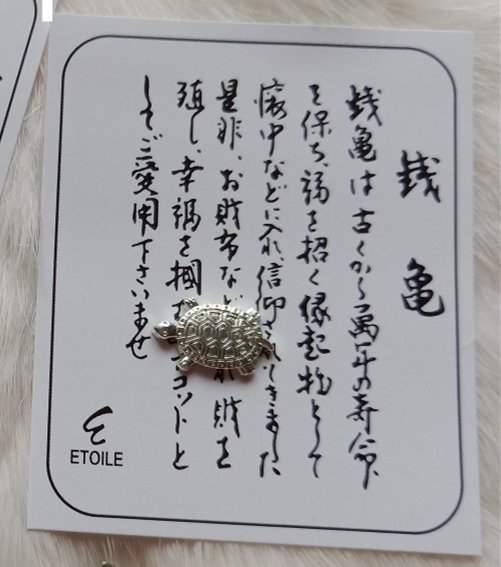 銭亀
銭亀は古くから萬年の寿命
を保ち、福を招く縁起物として
懐中などに入れ、信仰されてきました
是非、お財布など れ 財を
殖し、幸福を掴む コントと
してご愛用下さいませ
ETOILE